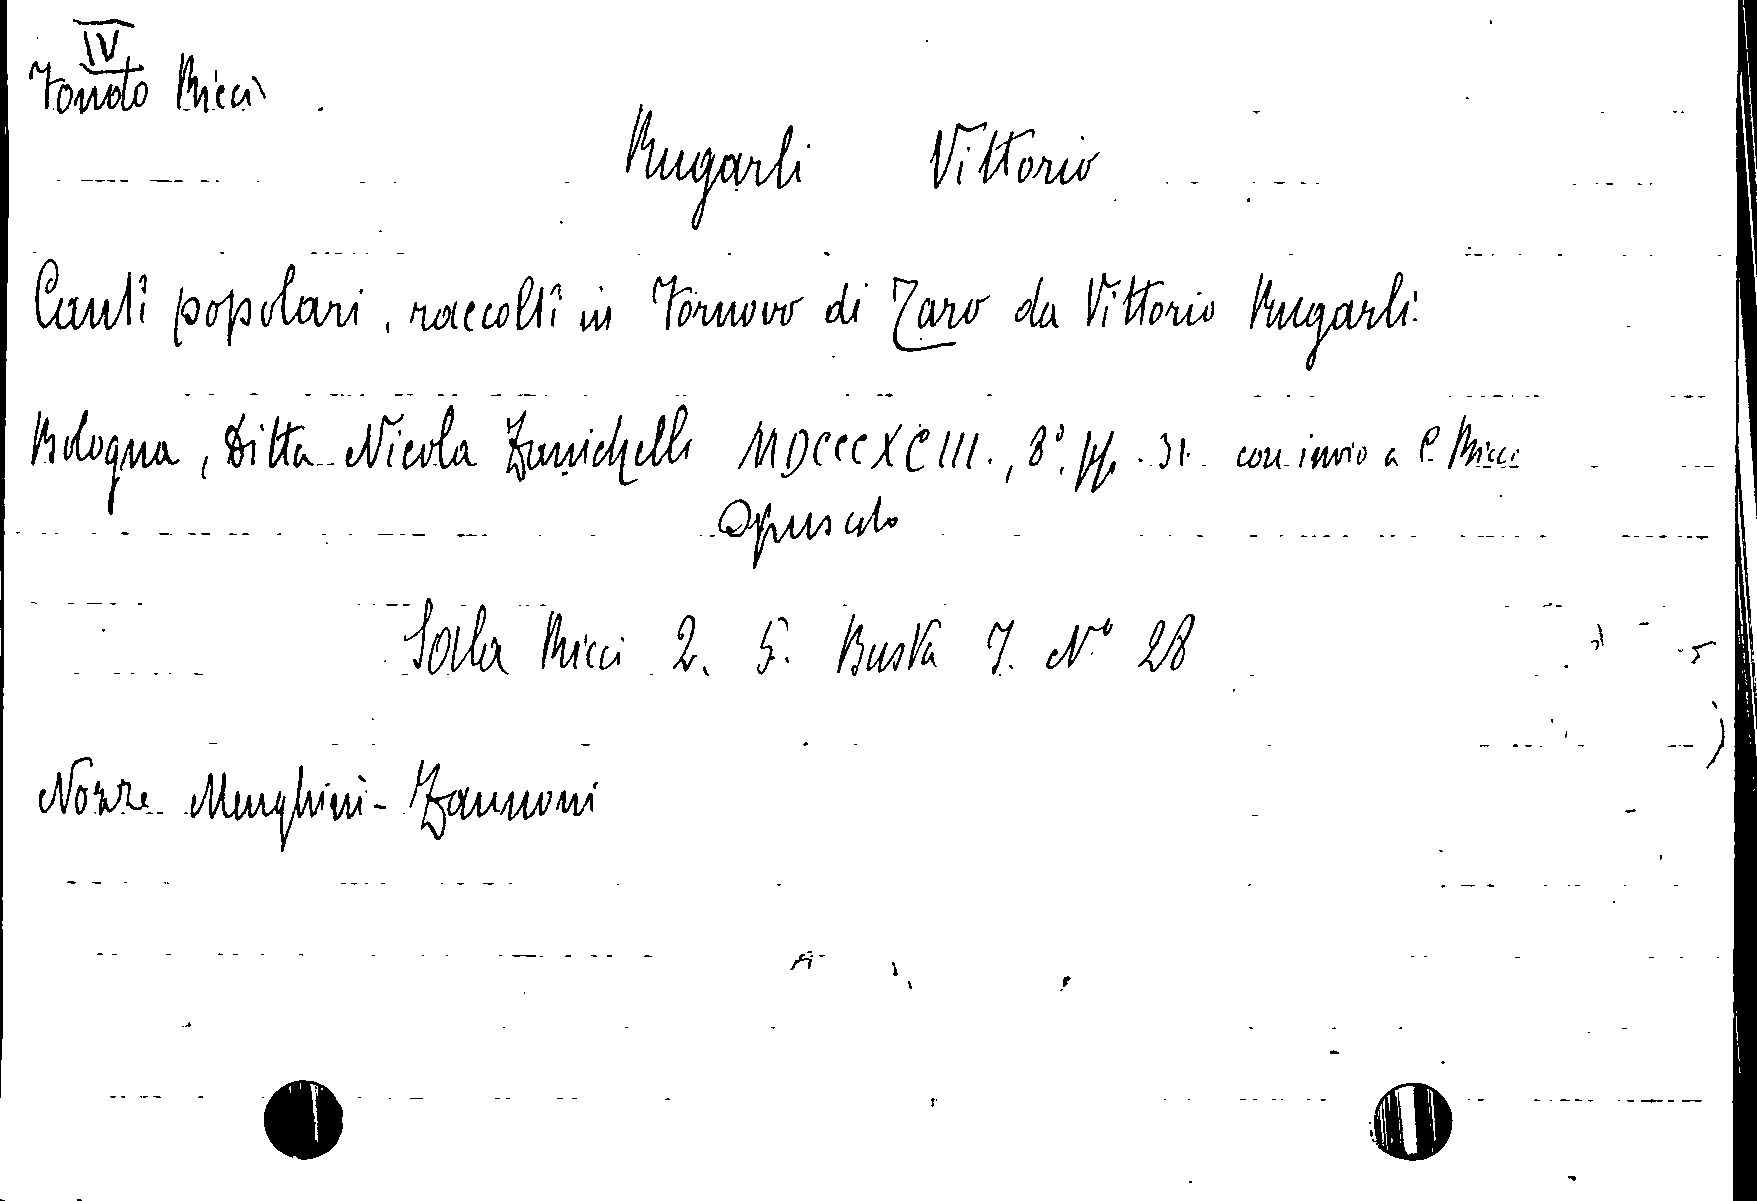 IV
Fondo Ricci
Rugarli Vittorio
Canti popolari, raccolti in Fornovo di Taro da Vittorio Rugarli.
Bologna, Ditta Nicola Zanichelli MDCCCXCIII., 8°. pp. 31. con invio a C. Ricci
Opuscolo
Sala Ricci 2. 5. Busta 7. N° 28
Nozze Menghini-Zannoni